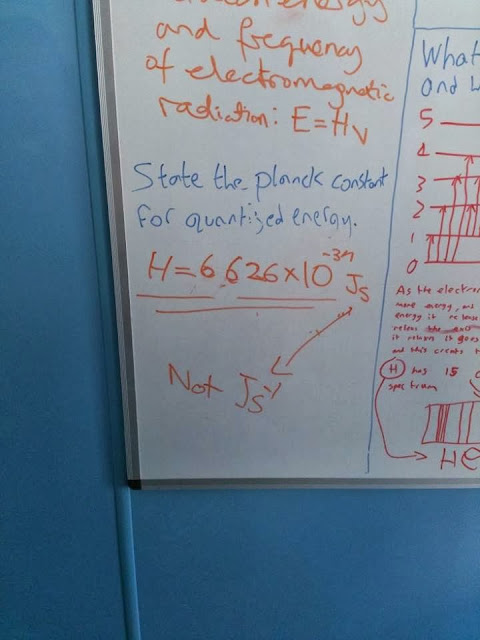 energy
and frequency
of electromagnetic
radiation: E=Hv
State the planck constant
for quantized energy.
H=6.626×10⁻³⁴ Js
Not Js⁻¹
What
and
5
4
3
2
1
0
As the electron
more energy, and
energy it release
release the
it returns it goes
and this creates
H has 15
spectrum
He